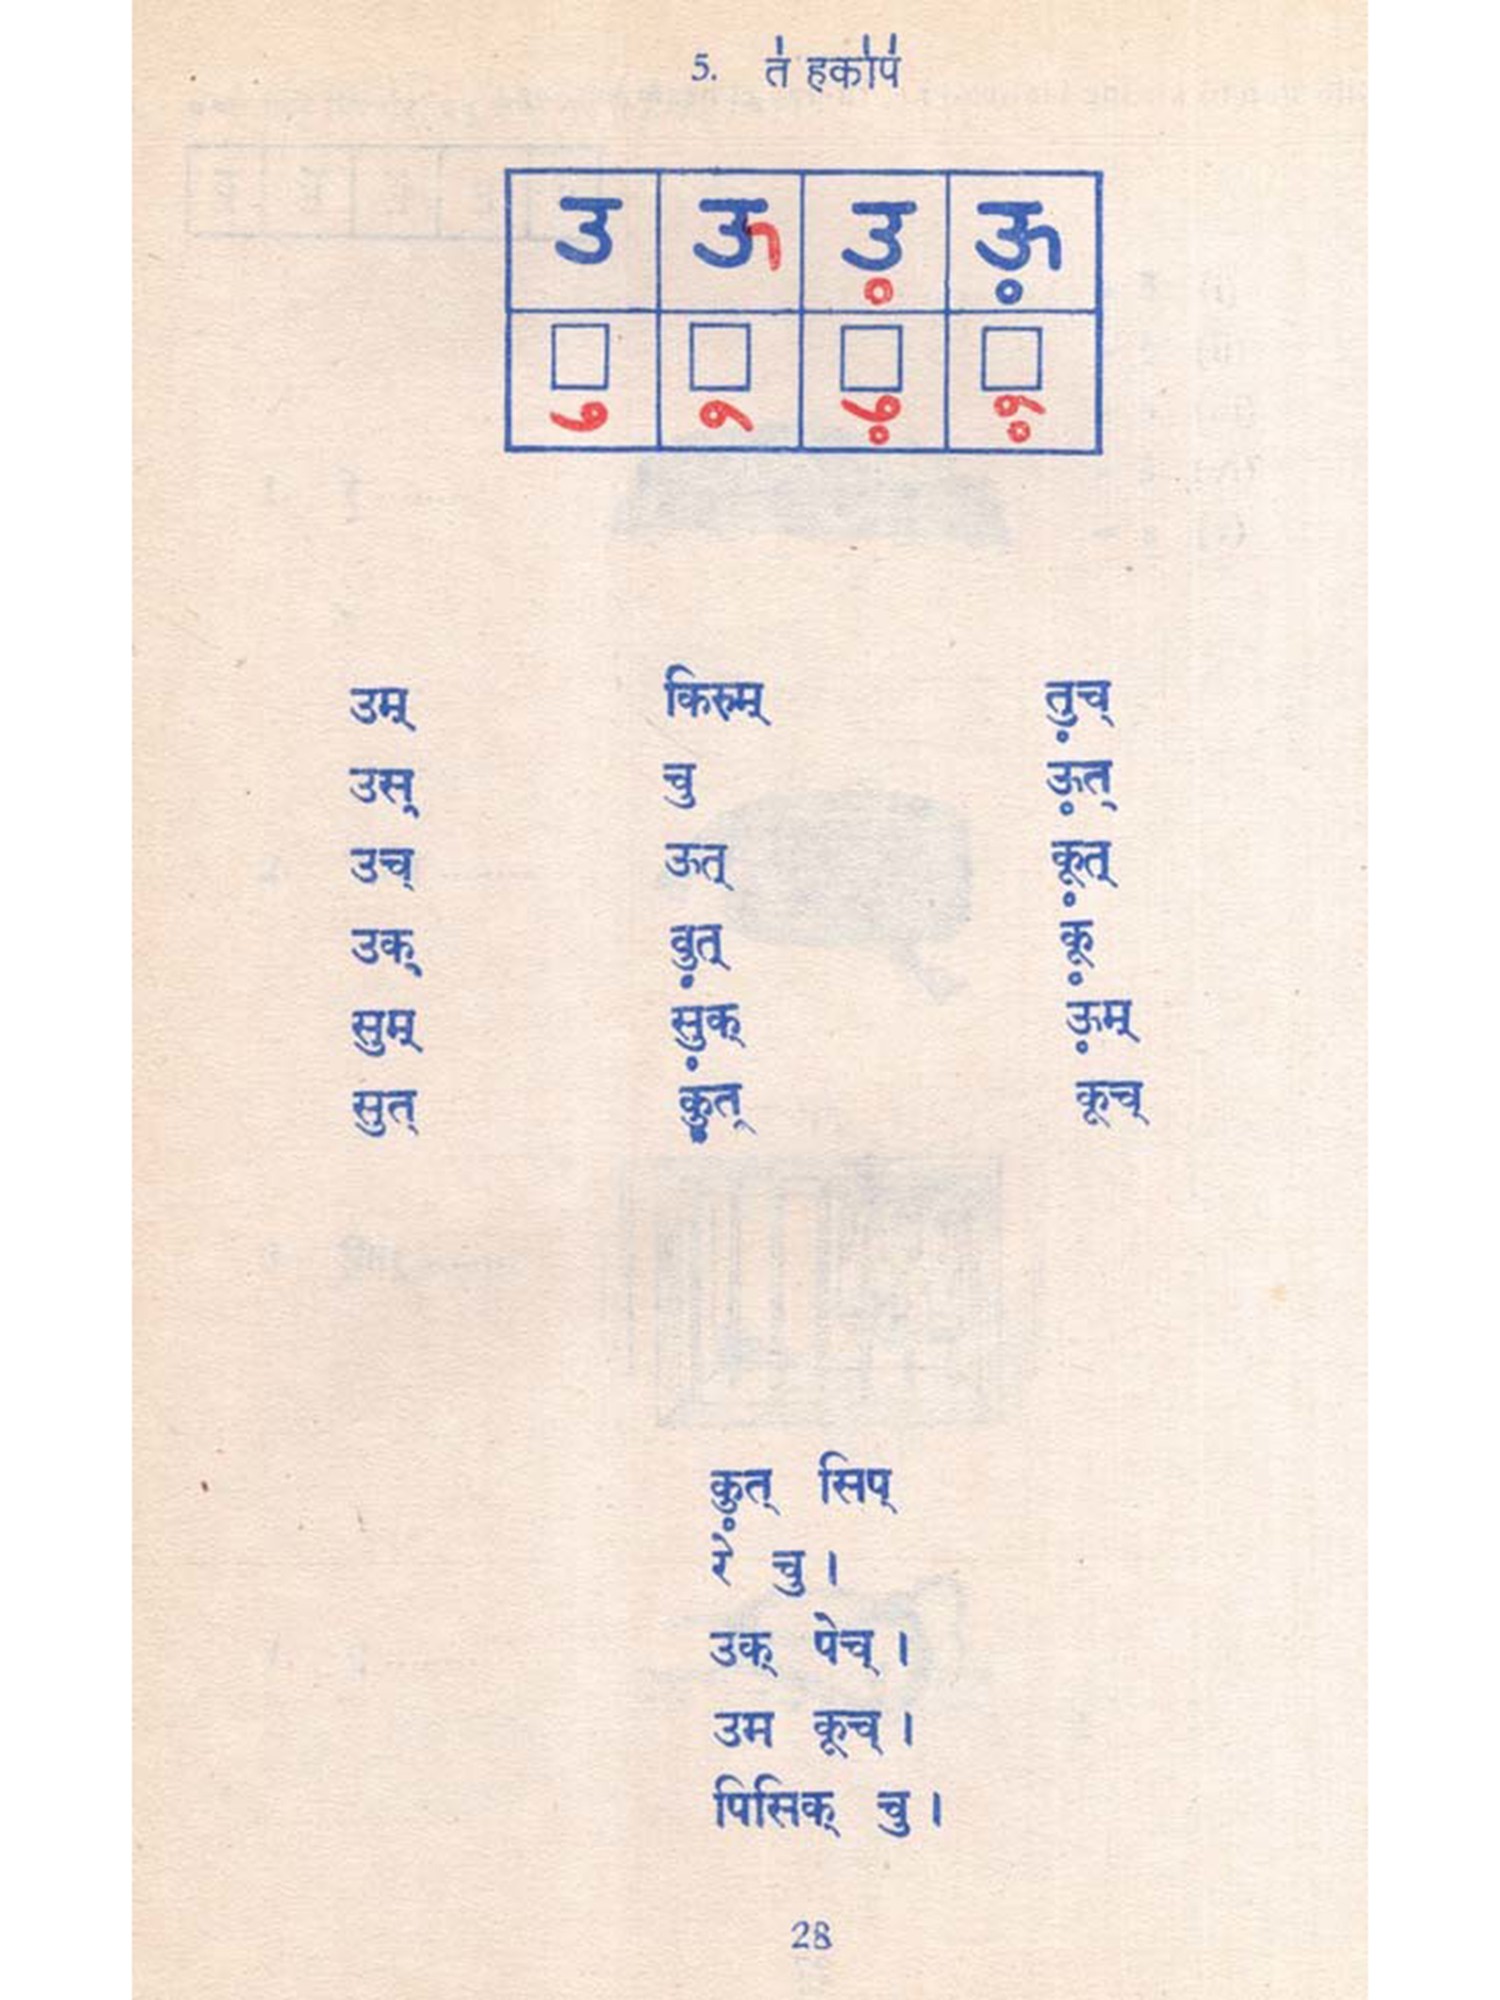 5. त॑ हका॑प॑
उ ऊ उ̥ ऊ̥
□ु □ू □ु̥ □ू̥
उम् किरुम् तु̥च्
उस् चु ऊ̥त्
उच् ऊत् कू̥त्
उक् वु̥त् कू̥
सुम् सु̥क् ऊ̥म्
सुत् कु̥त् कूच्
कु̥त् सिप्
रे चु।
उक् पेच्।
उम कूच्।
पिसिक् चु।
28